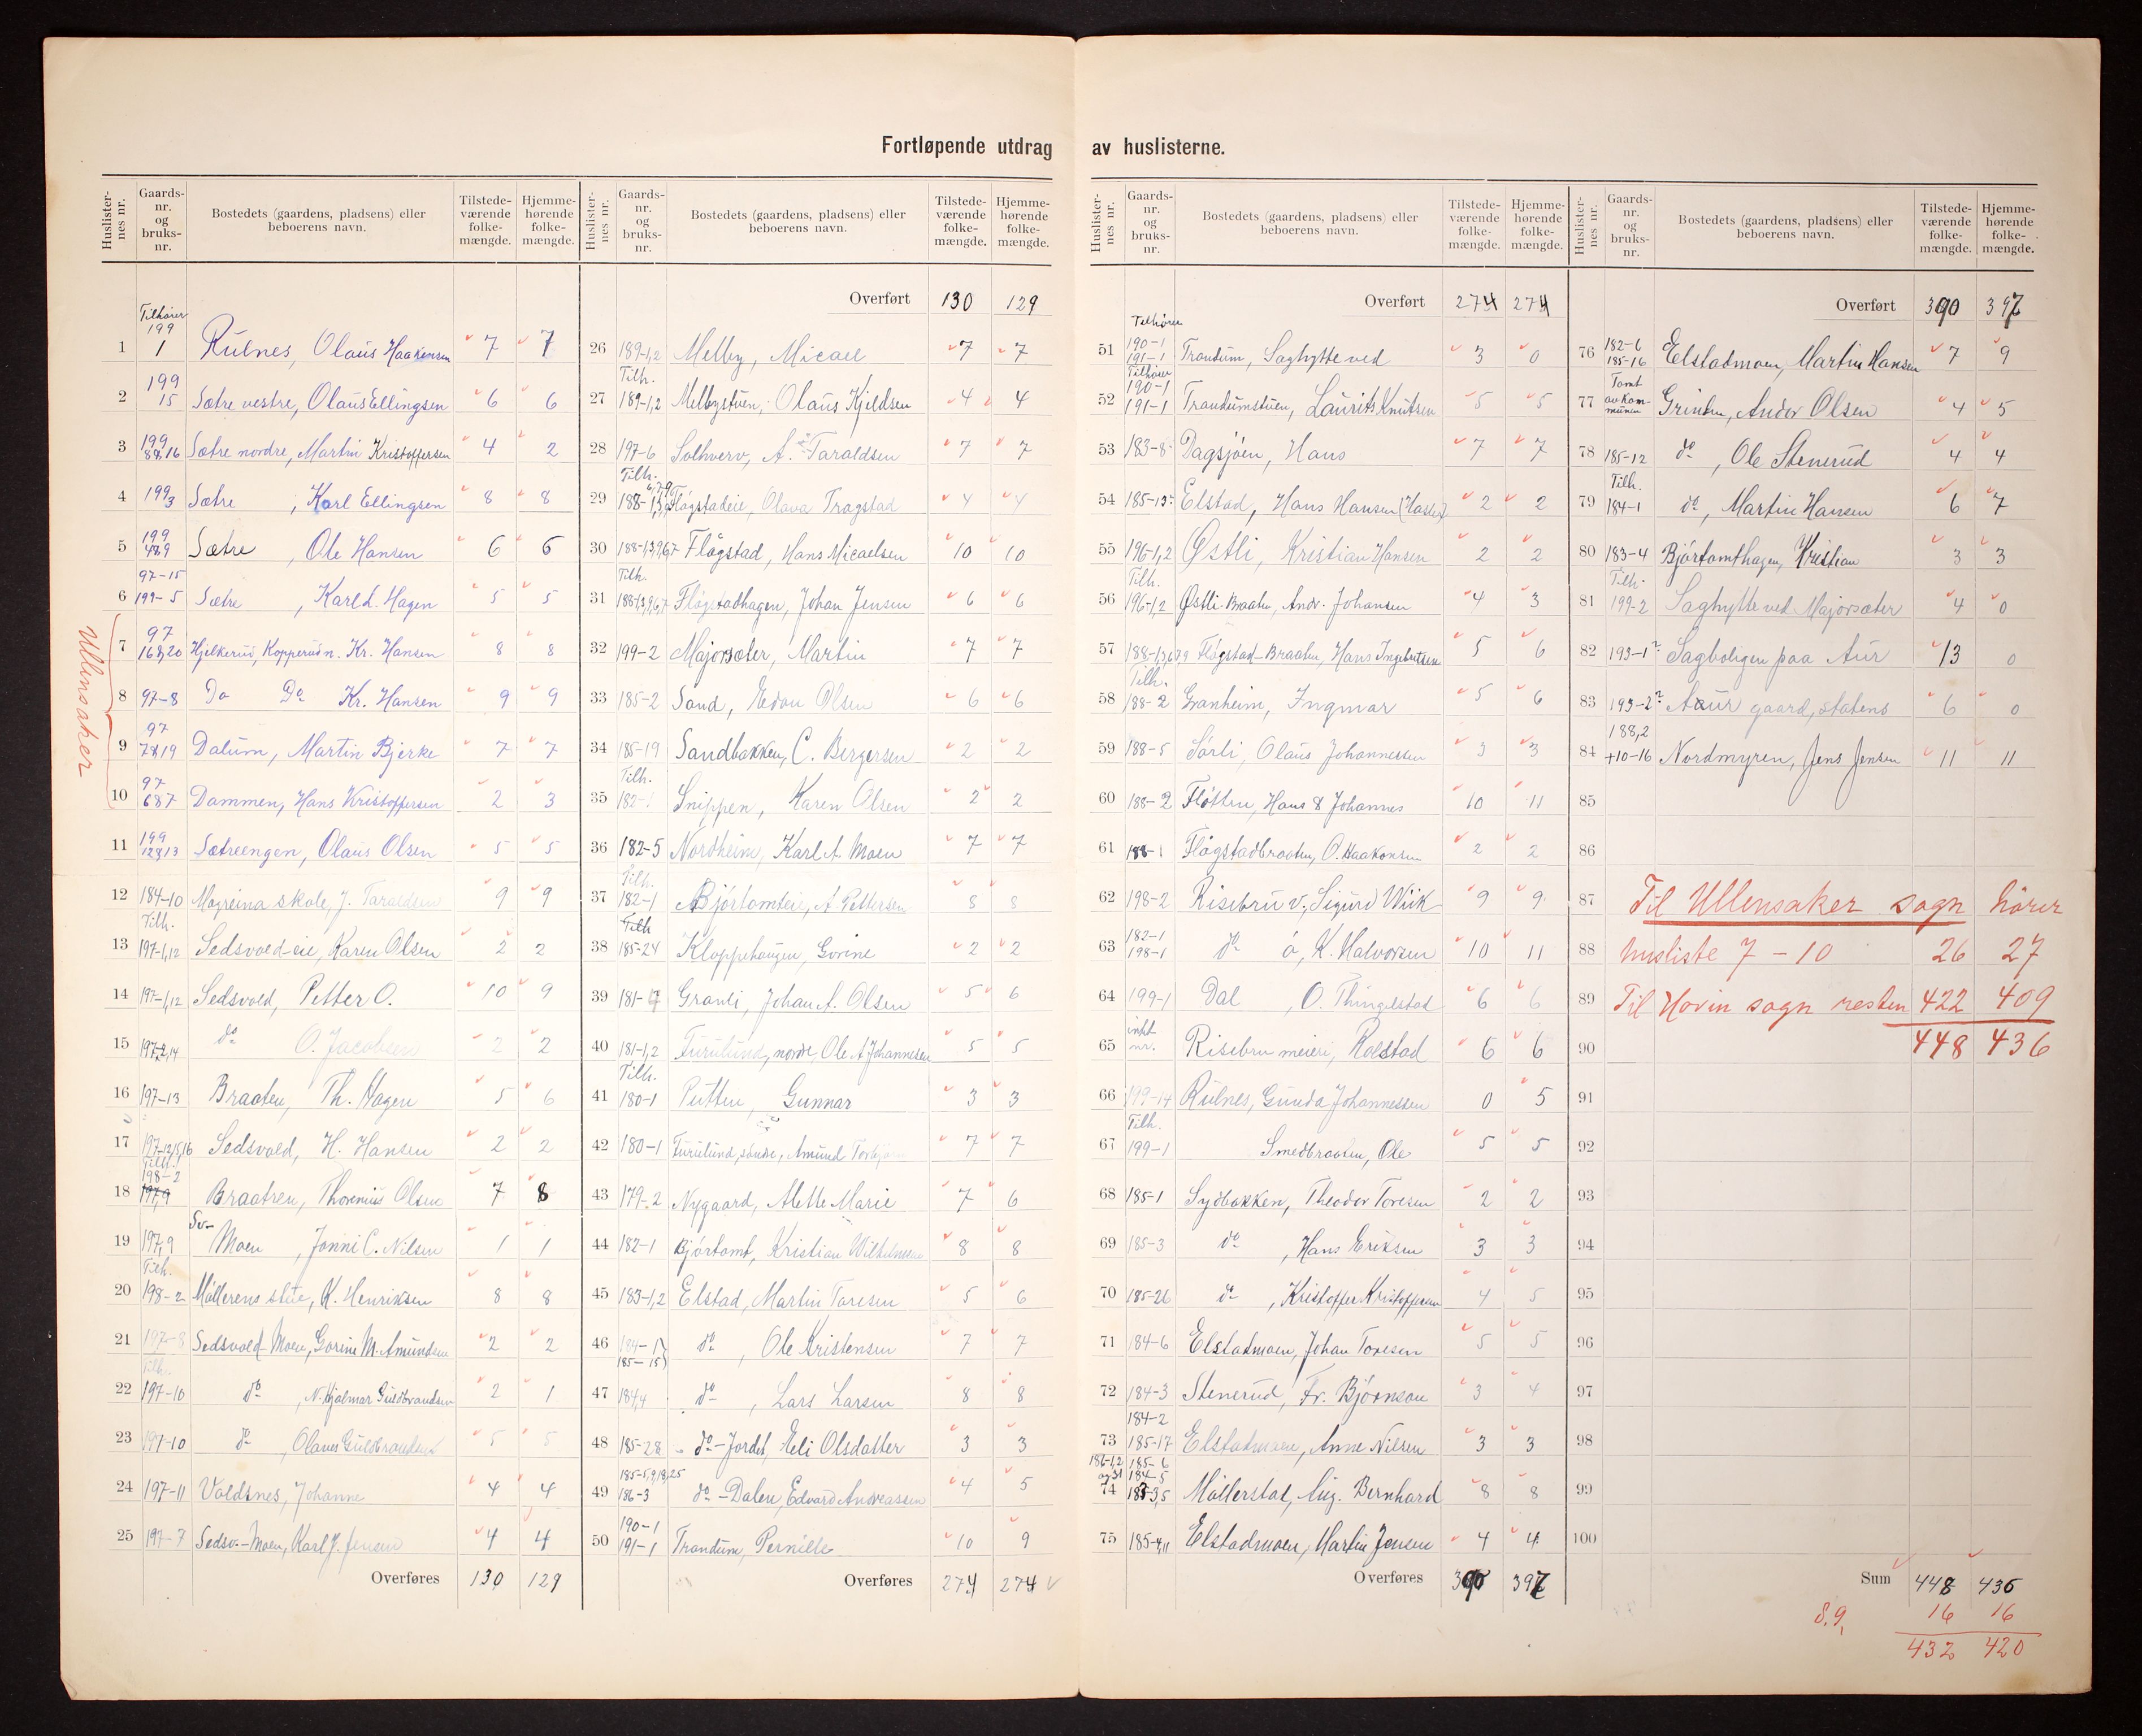 Fortløpende utdrag av huslisterne.
Huslisternes nr. Gaardsnr. og bruksnr. Bostedets (gaardens, pladsens) eller beboerens navn. Tilstedeværende folkemængde. Hjemmehørende folkemængde.
Tilhører
1 199 1 Rulnes, Olaus Haakensen 7 7
2 199 15 Sætre vestre, Olaus Ellingsen 6 6
3 199 8&16 Sætre nordre, Martin Kristoffersen 4 2
4 199 3 Sætre, Karl Ellingsen 8 8
5 199 4&9 Sætre, Ole Hansen 6 6
6 97-15 199-5 Sætre, Karl L. Hagen 5 5
Ullensaker
7 97 16&20 Hjelkerud, Kopperud n. Kr. Hansen 8 8
8 97-8 Do Do Kr. Hansen 9 9
9 97 7&19 Dalum, Martin Bjerke 7 7
10 97 6&7 Dammen, Hans Kristoffersen 2 3
11 199 12&13 Sætreengen, Olaus Olsen 5 5
12 184-10 Mogreina skole, J. Taraldsen 9 9
13 Tilh. 197-1,12 Sedsvold-eie, Karen Olsen 2 2
14 197-1,12 Sedsvold, Petter O. 10 9
15 197-2,14 do O. Jacobsen 2 2
16 197-13 Braaten, Th. Hagen 5 6
17 197-12,15,16 Sedsvold, H. Hansen 2 2
18 Tilh. 198-2 197,9 Braatren, Thorenius Olsen 7 8
19 197,9 Sv- Moen, Jonni C. Nilsen 1 1
20 Tilh. 198-2 Möllerens stue, K. Henriksen 8 8
21 197-8 Sedsvold-Moen, Gorine M. Amundsen 2 2
22 Tilh. 197-10 do, N. Hjalmar Guldbrandsen 2 1
23 197-10 do, Olaves Guldbrandsen 5 5
24 197-11 Voldsnes, Johanne 4 4
25 197-7 Sedsv.-Moen, Karl J. Jensen 4 4
Overføres 130 129
Huslisternes nr. Gaardsnr. og bruksnr. Bostedets (gaardens, pladsens) eller beboerens navn. Tilstedeværende folkemængde. Hjemmehørende folkemængde.
Overført 130 129
26 189-1,2 Melby, Micael 7 7
27 Tilh. 189-1,2 Melbystuen, Olaus Kjeldsen 4 4
28 197-6 Solhverv, A. Taraldsen 7 7
29 Tilh. 188-1,3,6,7,9 Flögstadeie, Olava Trogstad 4 4
30 188-1,3,9,6,7 Flögstad, Hans Micaelsen 10 10
31 Tilh. 188-1,3,9,6,7 Flögstadhagen, Johan Jensen 6 6
32 199-2 Majorsæter, Martin 7 7
33 185-2 Sand, Edvan Olsen 6 6
34 185-19 Sandbakken, C. Bergersen 2 2
35 Tilh. 182-1 Snippen, Karen Olsen 2 2
36 182-5 Nordheim, Karl A. Moen 7 7
37 Tilh. 182-1 Bjórtomteie, A. Pettersen 8 8
38 Tilh 185-24 Kloppehaugen, Gorine 2 2
39 181- Granli, Johan A. Olsen 5 6
40 181-1,2 Furulund, nordre, Ole A Johannesen 5 5
41 Tilh. 180-1 Putten, Gunnar 3 3
42 180-1 Furulund, søndre, Amund Torbjörn 7 7
43 179-2 Nygaard, Alette Marie 7 6
44 182-1 Bjórtomt, Kristian Wilhelmsen 8 8
45 183-1,2 Elstad, Martin Toresen 5 6
46 184-1 185-15 do, Ole Kristensen 7 7
47 184,4 do, Lars Larsen 8 8
48 185-28 do-Jordet, Eli Olsdatter 3 3
49 185-5,9,18,25 186-3 do-Dalen, Edvard Andreassen 4 5
50 190-1 191-1 Trondum, Pernille 10 9
Overføres 274 274
Huslisternes nr. Gaardsnr. og bruksnr. Bostedets (gaardens, pladsens) eller beboerens navn. Tilstedeværende folkemængde. Hjemmehørende folkemængde.
Overført 274 274
51 Tilhörer 190-1 191-1 Trandum, Saghytte ved 3 0
52 Tilhörer 190-1 191-1 Trandumstuen, Laurits Knutsen 5 5
53 183-8 Dagsjöen, Hans 7 7
54 185-13 Elstad, Hans Hansen 2 2
55 196-1,2 Østli, Kristian Hansen 2 2
56 Tilh. 196-1,2 Østli-Braaten, Andr. Johansen 4 3
57 188-1,3,6,7,9 Flögstad-Braaten, Hans Ingebretsen 5 6
58 Tilh. 188-2 Granheim, Ingmar 5 6
59 188-5 Sörli, Olaus Johannessen 3 3
60 188-2 Flötten, Hans & Johannes 10 11
61 188-1 Flögstadbraaten, O. Haakonsen 2 2
62 198-2 Risebru v., Sigurd Wiik 9 9
63 182-1 198-1 do ö, K. Halvorsen 10 11
64 199-1 Dal, O. Thingelstad 6 6
65 intet nr. Risebru meieri, Rolstad 6 6
66 199-14 Rulnes, Gunda Johannessen 0 5
67 Tilh. 199-1 Smedbraaten, Ole 5 5
68 185-1 Sydbakken, Theodor Toresen 2 2
69 185-3 do, Hans Eriksen 3 3
70 185-26 do, Kristoffer Kristoffersen 4 5
71 184-6 Elstadmoen, Johan Toresen 5 5
72 184-3 Stenerud, Fr. Björnson 3 4
73 184-2 185-17 Elstadmoen, Anne Nilsen 3 3
74 186-1,2 185-6 184-5 183-3,5 Möllerstal, Aug. Bernhard 8 8
75 185-4,11 Elstadmoen, Martin Jensen 4 4
Overføres 390 397
Huslisternes nr. Gaardsnr. og bruksnr. Bostedets (gaardens, pladsens) eller beboerens navn. Tilstedeværende folkemængde. Hjemmehørende folkemængde.
Overført 390 397
76 182-6 185-16 Elstadmoen, Martin Hansen 7 9
77 Tomt av kommunen Grinten, Andor Olsen 4 5
78 185-12 do, Ole Stenerud 4 4
79 Tilh. 184-1 do, Martin Hansen 6 7
80 183-4 Bjórtomthagen, Kristian 3 3
81 Tilh. 199-2 Saghytte ved Majorsæter 4 0
82 193-1? Sagboligen paa Aur 13 0
83 193-2? Aur gaard, statens 6 0
84 188,2 +10-16 Nordmyren, Jens Jensen 11 11
85
86
87 Til Ullensaker sogn hörer
88 husliste 7-10 26 27
89 Til Hovin sogn resten 422 409
90 448 436
91
92
93
94
95
96
97
98
99
100
Sum 448 436
8.9, 16 16
432 420